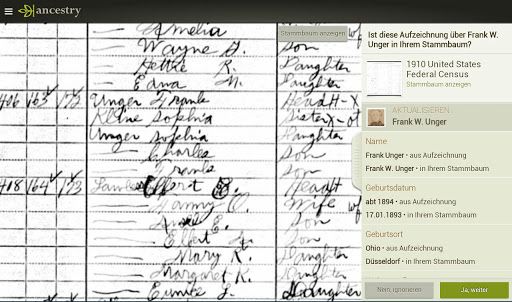 ancestry
Stammbaum anzeigen
Amelia
Wayne D. Son
Hettie R. Daughter
Edna M. Daughter
406 163 172 Unger Frank Head H-X
Kline Sophia Sister X-of
Unger Sophia Daughter
— Charles Son
— Frank Son
408 164 173 Elbert Head
— Fanny O. Wife
E. Son
— Elbert Jr. Son
— Mary K. Daughter
— Margaret K. Daughter
— Eunice L. Daughter
Ist diese Aufzeichnung über Frank W.
Unger in Ihrem Stammbaum?
1910 United States
Federal Census
Stammbaum anzeigen
AKTUALISIEREN
Frank W. Unger
Name
Frank Unger • aus Aufzeichnung
Frank W. Unger • in Ihrem Stammbaum
Geburtsdatum
abt 1894 • aus Aufzeichnung
17.01.1893 • in Ihrem Stammbaum
Geburtsort
Ohio • aus Aufzeichnung
Düsseldorf • in Ihrem Stammbaum
Nein, ignorieren
Ja, weiter